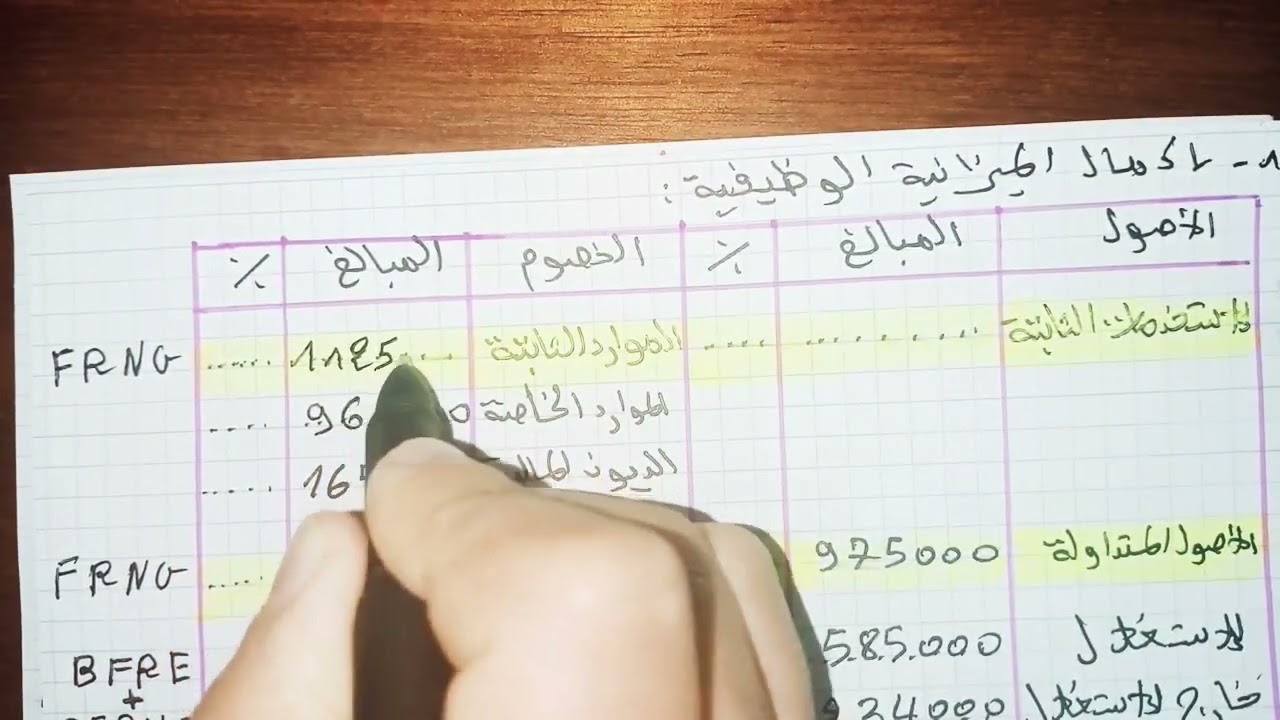 1- إكمال الميزانية الوظيفية :
الأصول المبالغ % الخصوم المبالغ %
الاستخدامات الثابتة .......... ..... الموارد الثابتة 1125... ...... FRNG
الموارد الخاصة .96 0 ....
الديون 16 .....
الأصول المتداولة 975000 ..... FRNG
للاستغلال 585.000 BFRE
+
خارج الاستغلال 234000